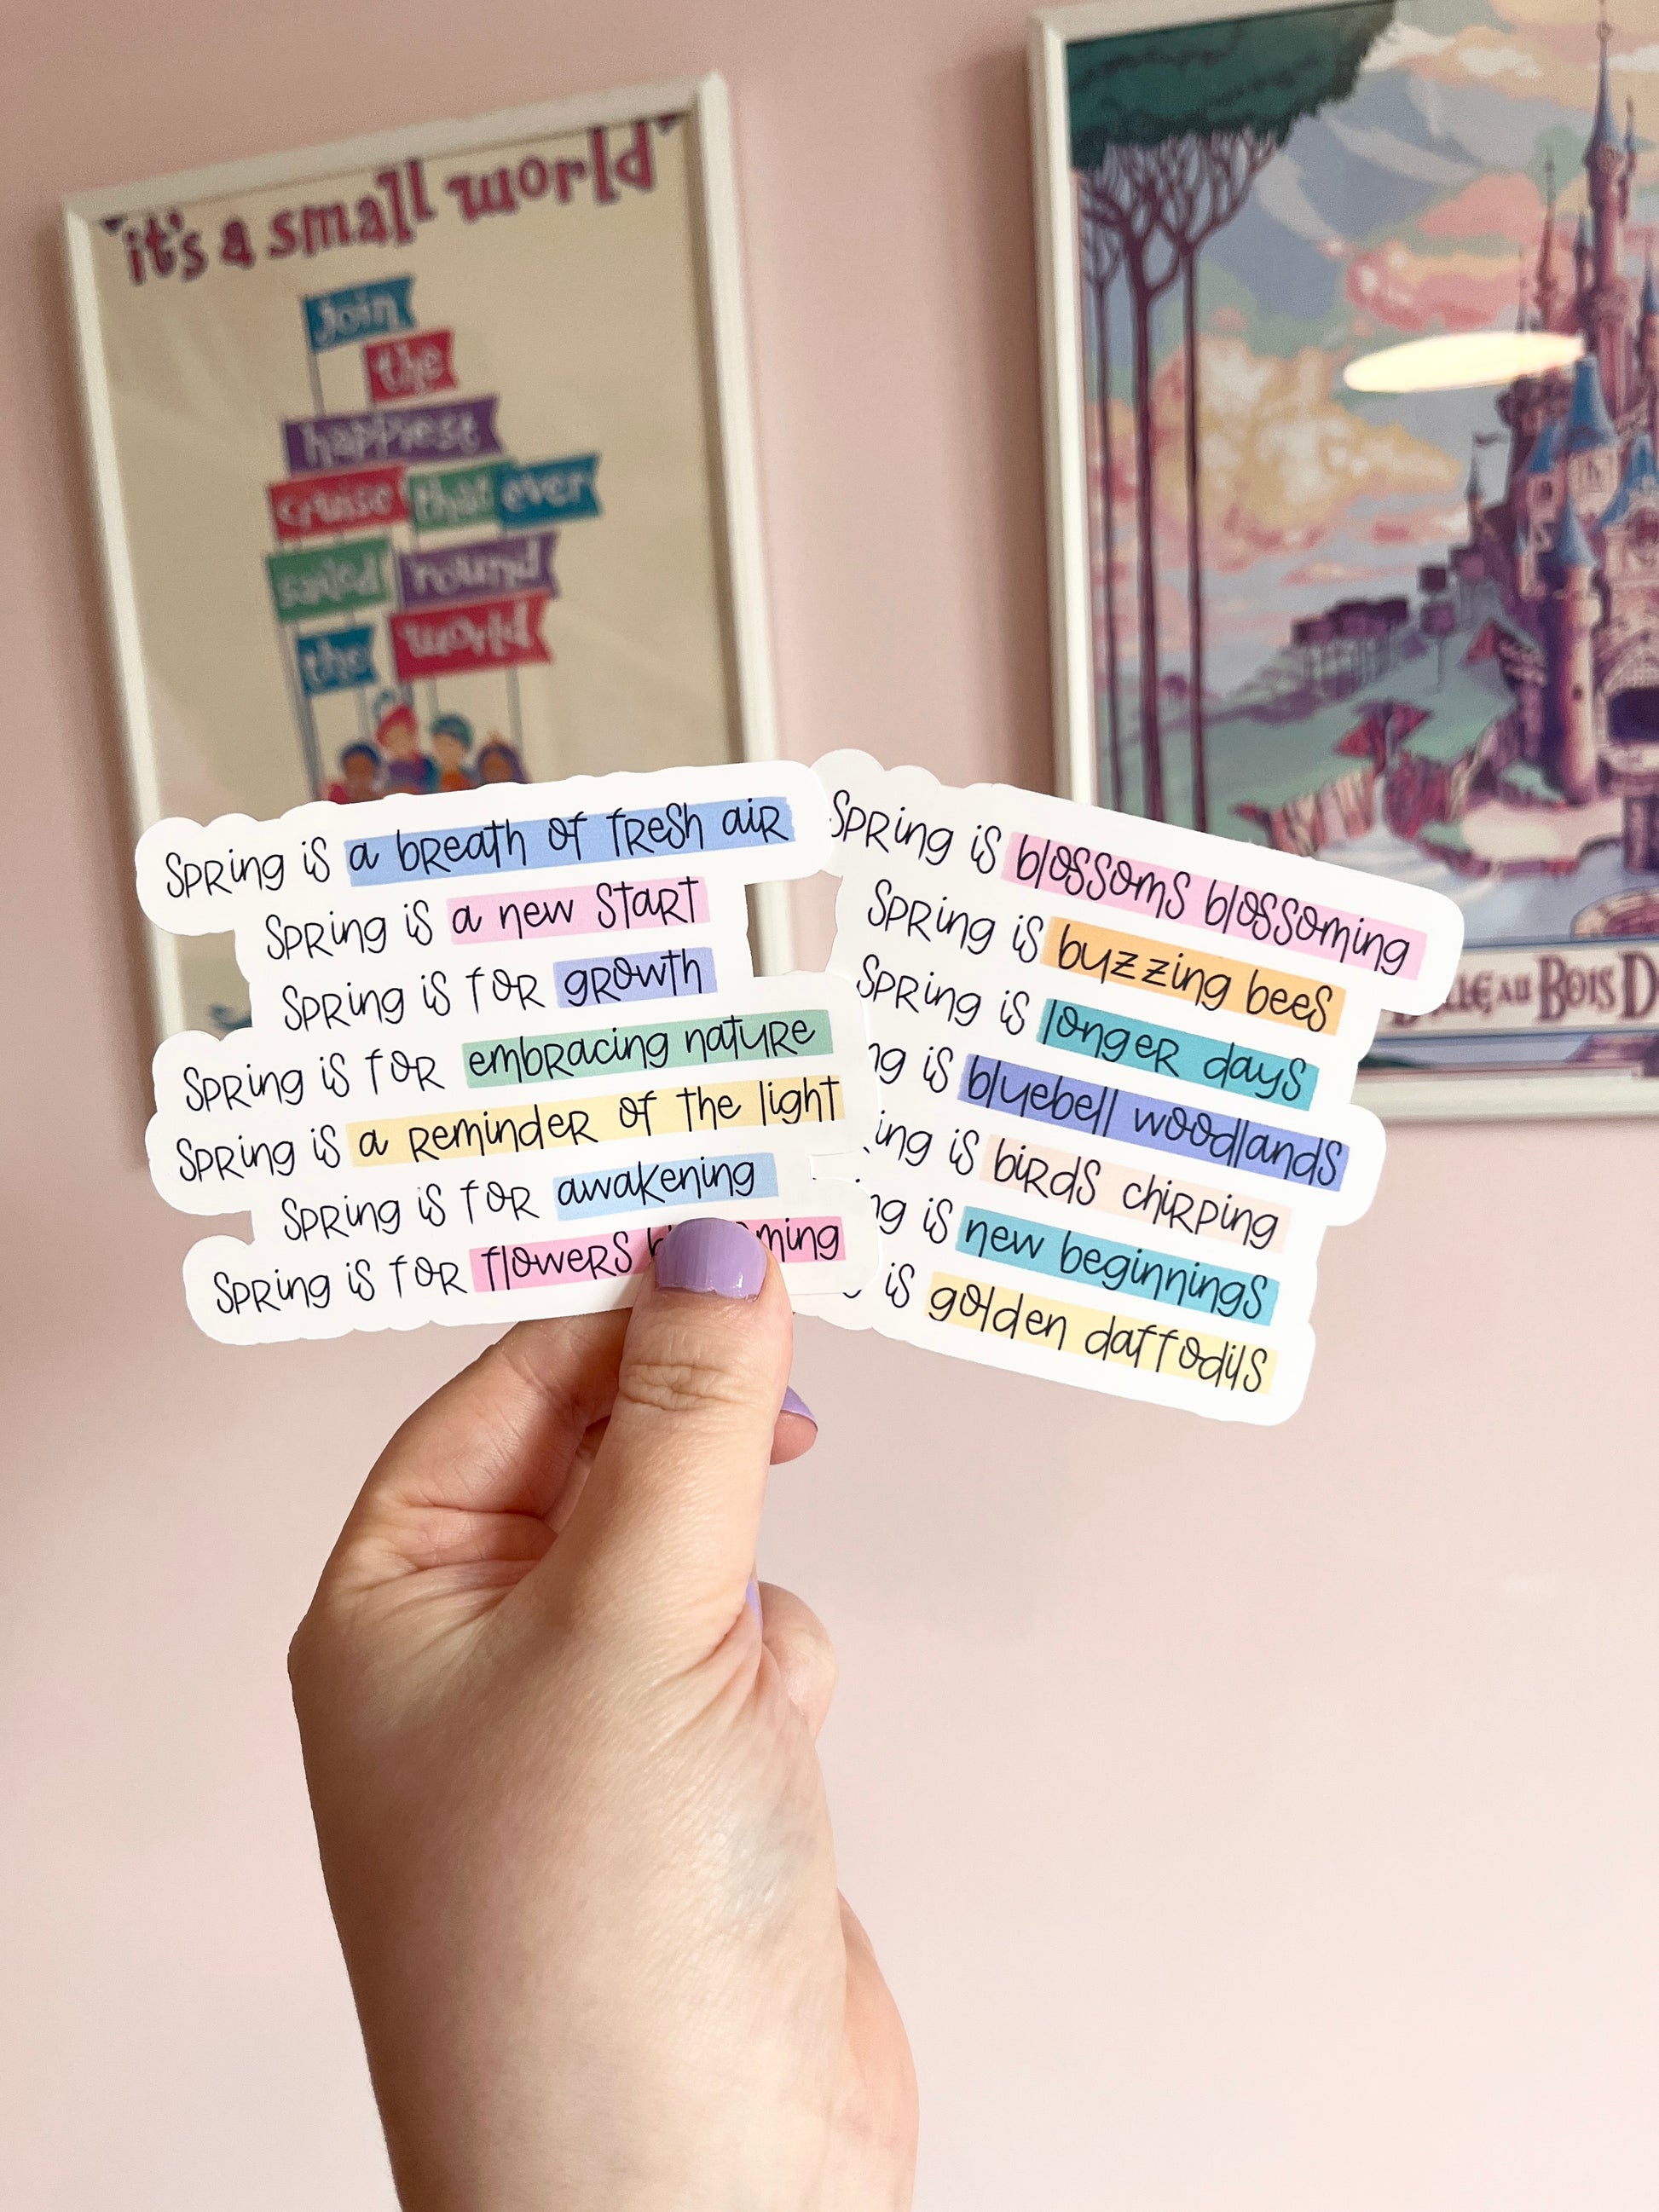 "it's a small world"
Join
the
happiest
cruise that ever
sailed round
the world
SPRing iS a bReath of fResh aiR
SPRing iS a new StaRt
SPRing iS foR gRowth
SPRing iS foR embRacing natuRe
SPRing iS a RemindeR of the light
SPRing iS foR awakening
SPRing iS foR floweRS
SPRing iS blossomS blossoming
SPRing iS buzzing beeS
SPRing iS longeR dayS
iS bluebell woodlandS
iS biRdS chiRPing
iS new beginningS
iS golden daffodilS
AU BOIS